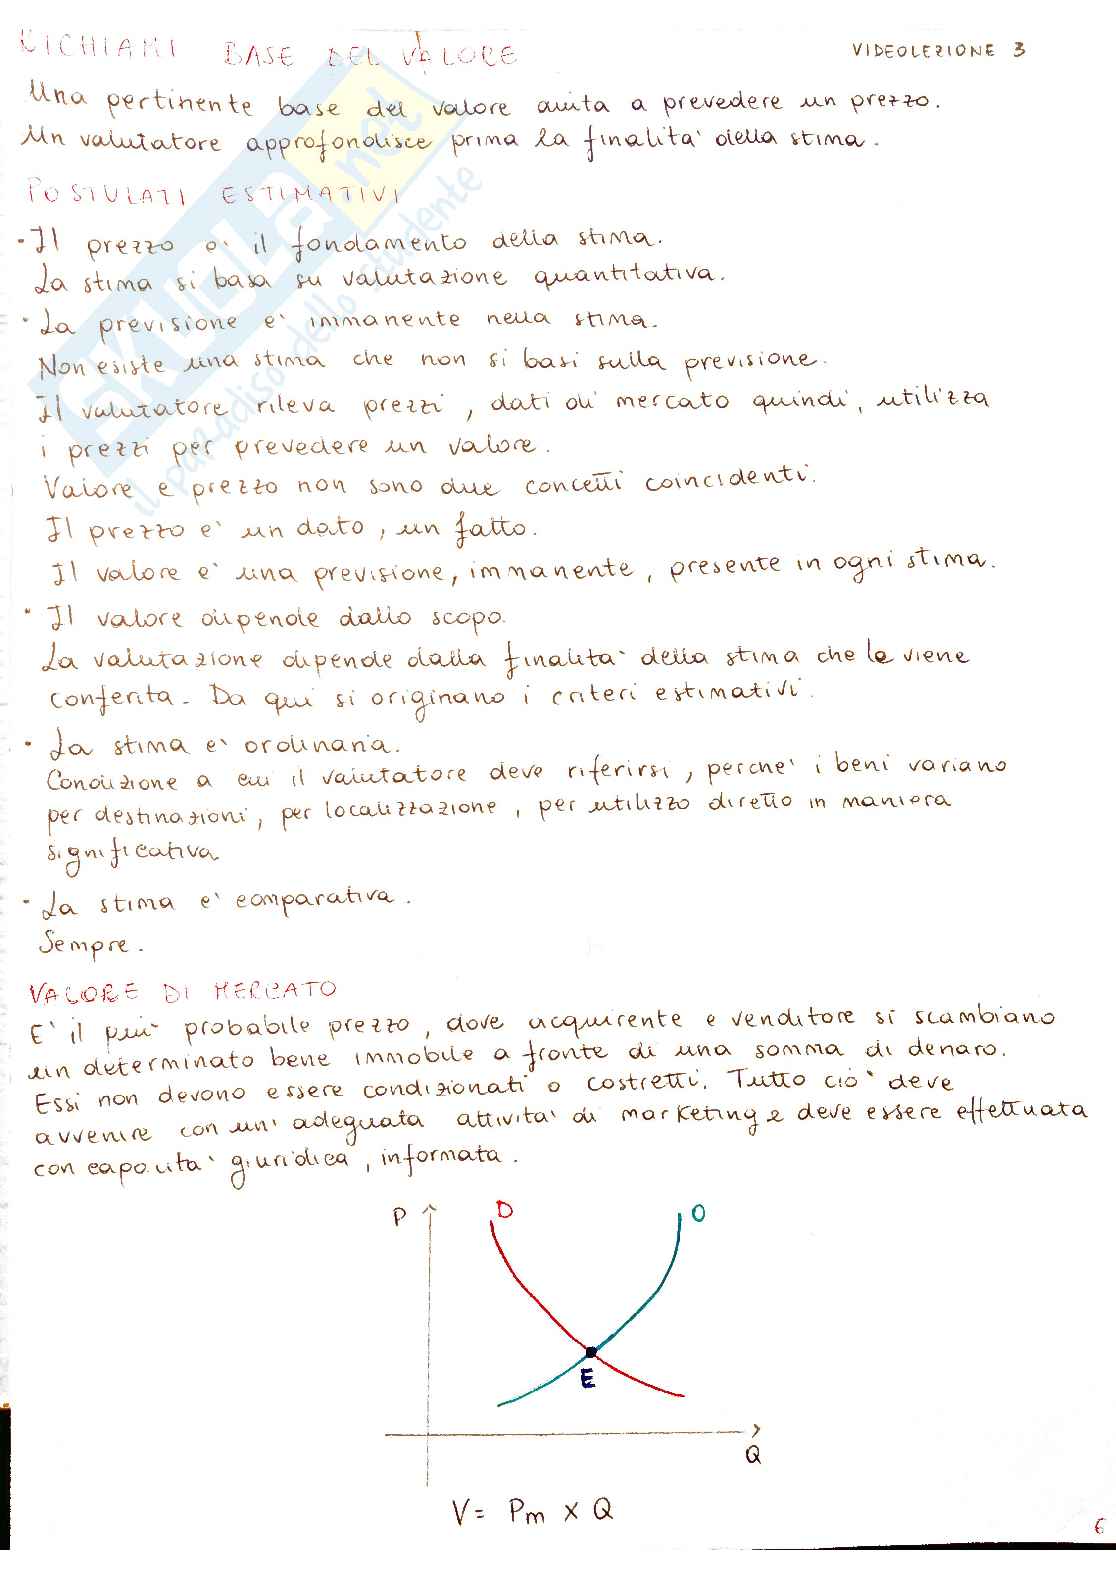 RICHIAMI BASE DEL VALORE
VIDEOLEZIONE 3
Una pertinente base del valore aiuta a prevedere un prezzo.
Un valutatore approfondisce prima la finalita' della stima.
POSTULATI ESTIMATIVI
·Il prezzo e' il fondamento della stima.
La stima si basa su valutazione quantitativa.
· La previsione e' immanente nella stima.
Non esiste una stima che non si basi sulla previsione.
Il valutatore rileva prezzi, dati di mercato quindi, utilizza
i prezzi per prevedere un valore.
Valore e prezzo non sono due concetti coincidenti.
Il prezzo e' un dato, un fatto.
Il valore e' una previsione, immanente, presente in ogni stima.
· Il valore dipende dallo scopo.
La valutazione dipende dalla finalita' della stima che le viene
conferita. Da qui si originano i criteri estimativi.
· La stima e' ordinaria.
Condizione a cui il valutatore deve riferirsi, perche' i beni variano
per destinazioni, per localizzazione, per utilizzo diretto in maniera
significativa
· La stima e' comparativa.
Sempre.
VALORE DI MERCATO
E' il piu' probabile prezzo, dove acquirente e venditore si scambiano
un determinato bene immobile a fronte di una somma di denaro.
Essi non devono essere condizionati o costretti. Tutto cio' deve
avvenire con un' adeguata attivita' di marketing e deve essere effettuata
con capacita' giuridica, informata.
P
D
O
E
Q
V= Pm x Q
6
SKUOLA.net
il paradiso dello studente